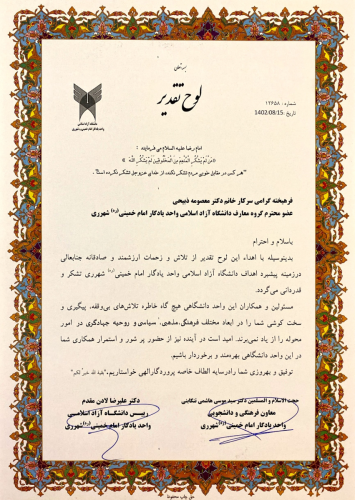 بسمه تعالی
لوح تقدیر
شماره : ۱۲۶۵۸
تاریخ: 1402/08/15
دانشگاه آزاد اسلامی
واحد یادگار امام خمینی(ره) شهرری
امام رضا علیه السلام می فرمایند :
« مَن لَم یَشکُرِ المُنعِمَ مِنَ المَخلوقینَ لَم یَشکُرِ اللّه »
"هر کس در مقابل خوبی مردم تشکر نکند، از خدای عزوجل تشکر نکرده است".
فرهیخته گرامی سرکار خانم دکتر معصومه ذبیحی
عضو محترم گروه معارف دانشگاه آزاد اسلامی واحد یادگار امام خمینی(ره) شهرری
باسلام و احترام
بدینوسیله با اهداء این لوح تقدیر از تلاش و زحمات ارزشمند و صادقانه جنابعالی
درزمینه پیشبرد اهداف دانشگاه آزاد اسلامی واحد یادگار امام خمینی(ره) شهرری تشکر و
قدردانی می‌گردد.
مسئولین و همکاران این واحد دانشگاهی هیچ گاه خاطره تلاش‌های بی‌وقفه، پیگیری و
سخت کوشی شما را در ابعاد مختلف فرهنگی،مذهبی، سیاسی و روحیه جهادگری در امور
محوله را از یاد نمی‌برند. امید است در آینده نیز از حضور پر شور و استمرار همکاری شما
در این واحد دانشگاهی بهره‌مند و برخوردار باشیم.
توفیق و بهروزی شما را درسایه الطاف خاصه پروردگارالهی خواستاریم."بقیة الله خیرٌ لکم"
حجت الاسلام و المسلمین دکتر سید موسی هاشمی تنکابنی
معاون فرهنگی و دانشجویی
واحد یادگار امام خمینی(ره) شهرری
دکتر علیرضا لادن مقدم
رییس دانشگاه آزاد اسلامی
واحد یادگار امام خمینی(ره) شهرری
حق چاپ محفوظ